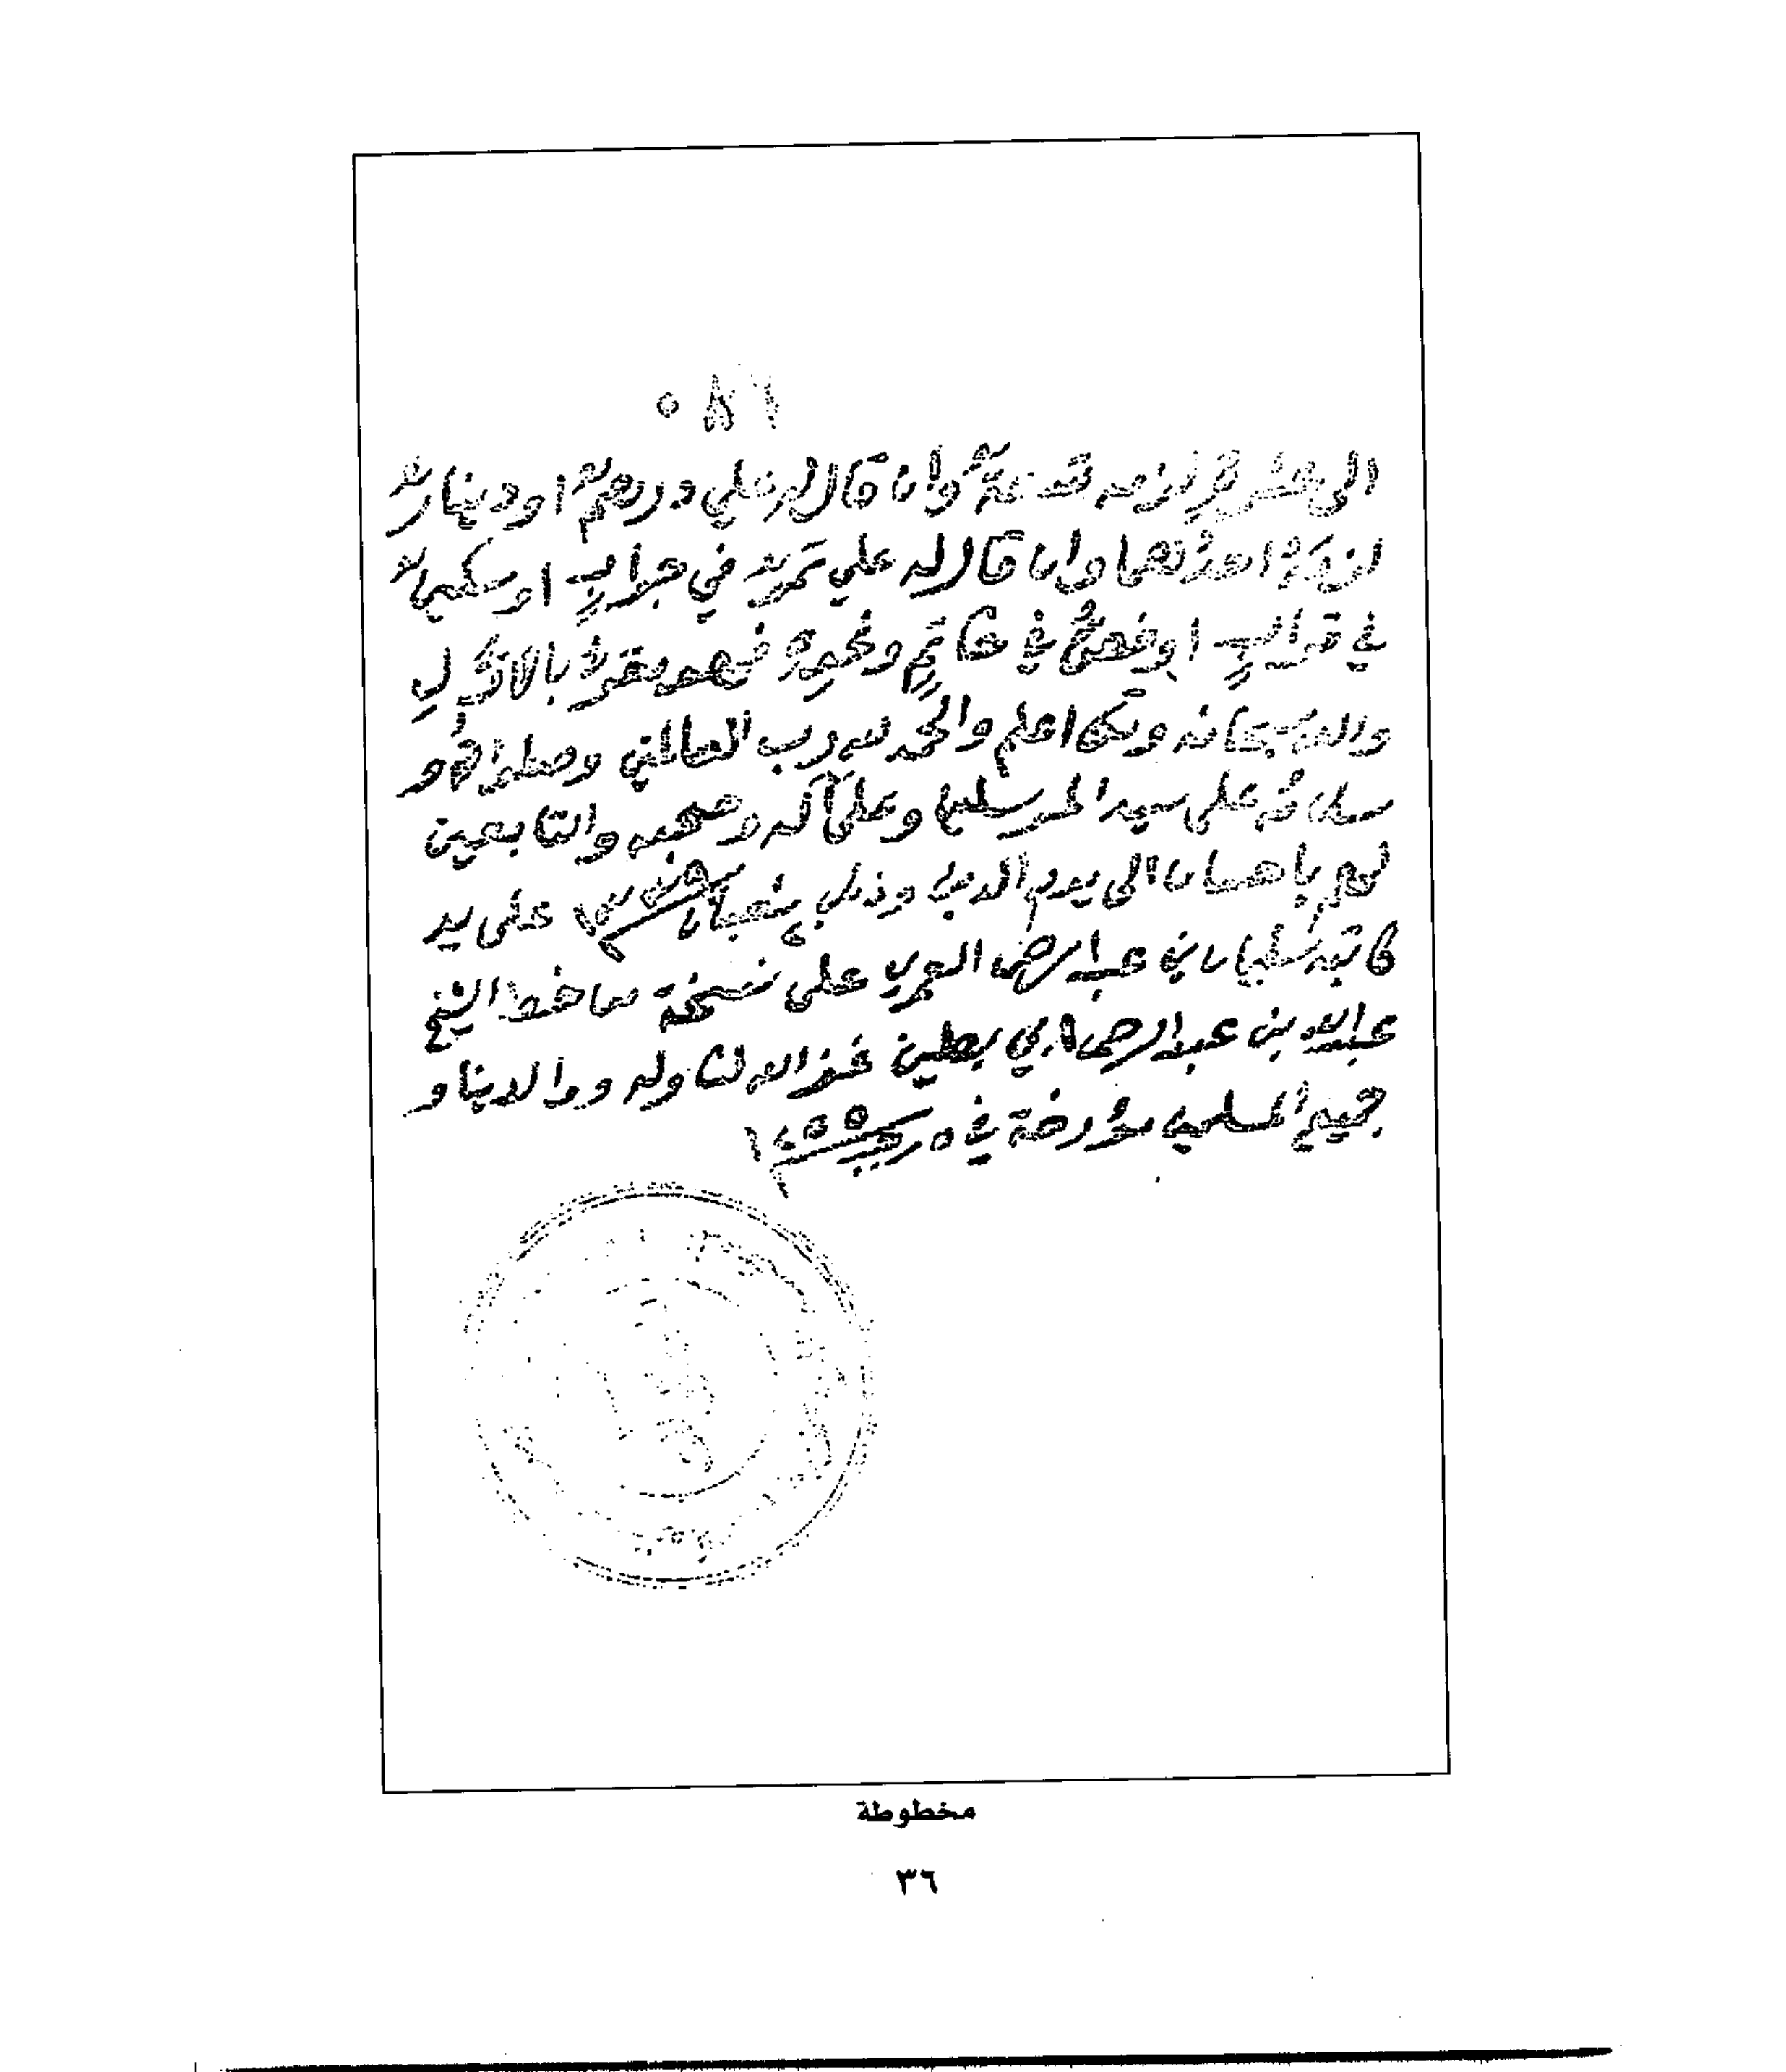 الى عشرةٍ لزمه تسعةٌ وان قال له علي درهمٌ او دينارٌ
لزمهُ احدُهما وان قال له علي تمرٌ في جرابٍ او سكينٌ
في قرابٍ او فصٌ في خاتمٍ ونحوه فهو مقرٌ بالاولِ
والله سبحانه وتعا اعلم والحمد لله رب العالمين وصلواته و
سلامه على سيد المرسلين وعلى آله وصحبه والتابعين
لهم باحسان الى يوم الدين وذلك شعبان على يد
كاتبه سليمان بن عبد الرحمن العمري على نسخة من خط الشيخ
عبد الله بن عبد الرحمن ابي بطين غفر الله لنا وله ووالدينا و
جميع المسلمين مؤرخة في ٥ رجب
مخطوطة
٣٦